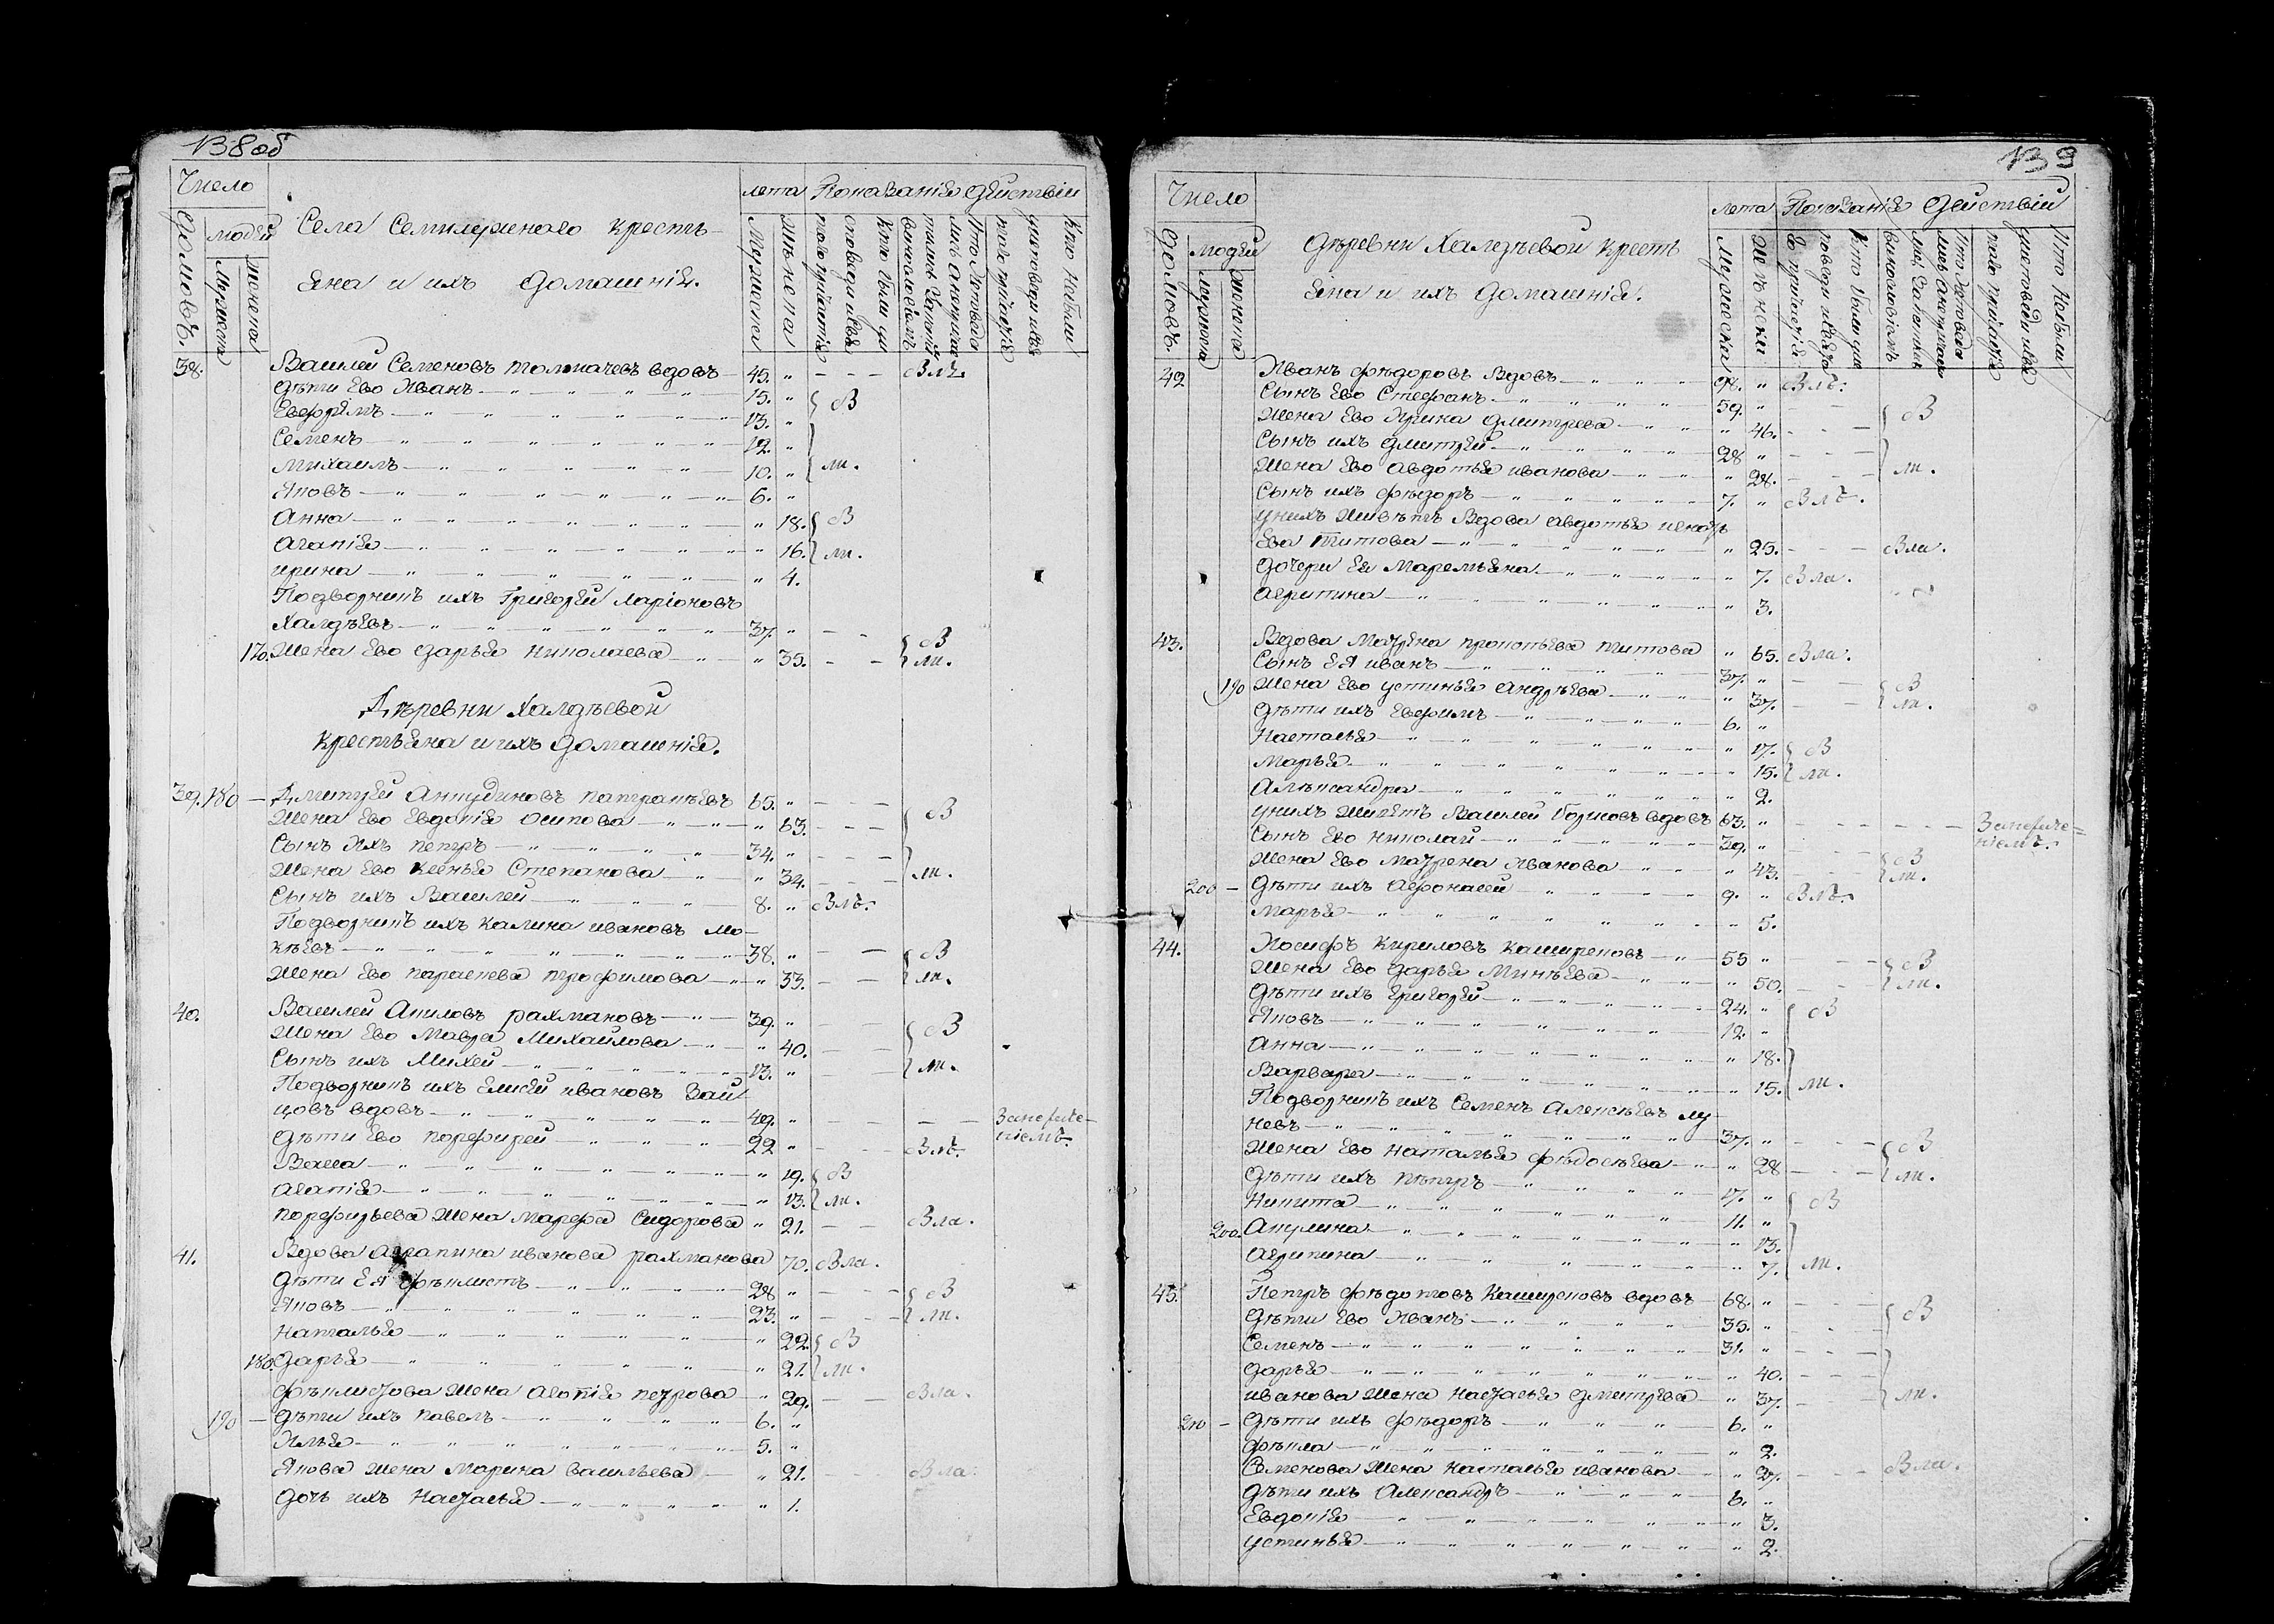 138 об
Число
домовъ.
людей
мужеска
женска
Села Семилужнаго кресть-
яна и ихъ домашнія.
лета
мужеска
женска
Показанія действіи
Кто небыли
38. Василей Семеновъ толмачевъ вдовъ 45. " Влѣ.
Дѣти Ево Иванъ 15. " В
Евфимъ 13. "
Семенъ 12. "
Михаилъ 10. " ли.
Яковъ 6. "
Анна " 18. В
Агапія " 16. ли.
ирина " 4.
Подворникъ ихъ Григорей ларіоновъ
Халдѣевъ 37. " В
170. Жена Ево дарья николаева " 35. ли.
Дѣревни Халдѣевой
крестьяна и ихъ домашнія.
39. 180 Дмитрей Анкудиновъ панкратьевъ 65. " В
Жена Ево Евдокія Осипова " 63.
Сынъ Ихъ петръ 34. "
Жена Ево ксенья Степанова " 34. ли.
Сынъ ихъ Василей 8. " Влѣ.
Подворникъ ихъ калина ивановъ мо-
кѣевъ 38. " В
Жена Ево параскева трофимова " 33. ли.
40. Василей рахмановъ 39. " В
Жена Ево Мавра Михаилова " 40.
Сынъ ихъ Михей 13. " ли.
Подворникъ ихъ Елисей ивановъ Зай
цовъ вдовъ 49. " Занерече-
ніемъ.
Дѣти Ево порфирей 22 " Влѣ.
" 19. В
Агапія " 13. ли.
порфирьева Жена Марфа Сидорова " 21. Вла.
41. Вдова Аграпина иванова рахманова 70. Вла.
Дѣти Ея фѣклистъ 28 " В
Яковъ 23. " ли.
Наталья " 22. В
180. Дарья " 21. ли.
фѣклистова Жена Агапія петрова " 29. Вла.
190 Дѣти ихъ павелъ 6. "
Илья 5. "
Якова Жена Марина васильева " 21. Вла.
Дочь ихъ Настасья " 1.
139
Число
домовъ.
людей
мужеска
женска
Дѣревни Халдѣевой кресть
яна и ихъ домашнія.
лета
мужеска
женски
Показанія действіи
Кто небыли
42 Иванъ фѣдоровъ Вдовъ 98. " Влѣ.
Сынъ Ево Стефанъ 59. " В
Жена Ево Ирина дмитрева " 46.
Сынъ ихъ дмитрей 28 "
Жена Ево Авдотья иванова " 28. ли.
Сынъ ихъ фѣдоръ 7. " Влѣ.
унихъ живѣтъ Вдова Авдотья
Ева титова " 25. Вла.
Дочери Ея Маремьяна " 7. Вла.
Агрипина " 3.
43. Вдова Матрена прокопьева титова " 65. Вла.
Сынъ ЕЯ иванъ 37. " В
190 Жена Ево устинья андрѣева " 37. ли.
Дѣти ихъ Евфимъ 6. "
Настасья " 17. В
Марья " 15. ли.
Алѣксандра " 2.
унихъ Живѣтъ Василей борисовъ вдовъ 63. " Занерече=
ніемъ.
Сынъ Ево николай 39. " В
Жена Ево Матрена Иванова " 43. ли.
200 Дѣти ихъ Афонасей 9. " Влѣ.
Марья " 5.
44. Иосифъ кириловъ кашуреновъ 55 " В
Жена Ево дарья Минѣева " 50. ли.
Дѣти ихъ Григорей 24. " В
Яковъ 12. "
Анна " 18.
Варвара " 15. ли.
Подворникъ ихъ Семенъ Алексѣевъ лу
невъ 37. " В
Жена Ево Наталья фѣдосѣева " 28 ли.
Дѣти ихъ пѣтръ 17. " В
Никита 11. "
200. Акулина " 13.
Агрипина " 7. ли.
45. Петръ фѣдотовъ кашуреновъ вдовъ 68. " В
Дѣти Ево Иванъ 35. "
Семенъ 31. "
Дарья " 40.
иванова Жена Настасья дмитрева " 37. ли.
210 Дѣти ихъ фѣдоръ 6. "
фѣкла " 2.
Семенова Жена настасья иванова " 27. Вла.
Дѣти ихъ Александръ 6. "
Евдокія " 3.
устинья " 2.